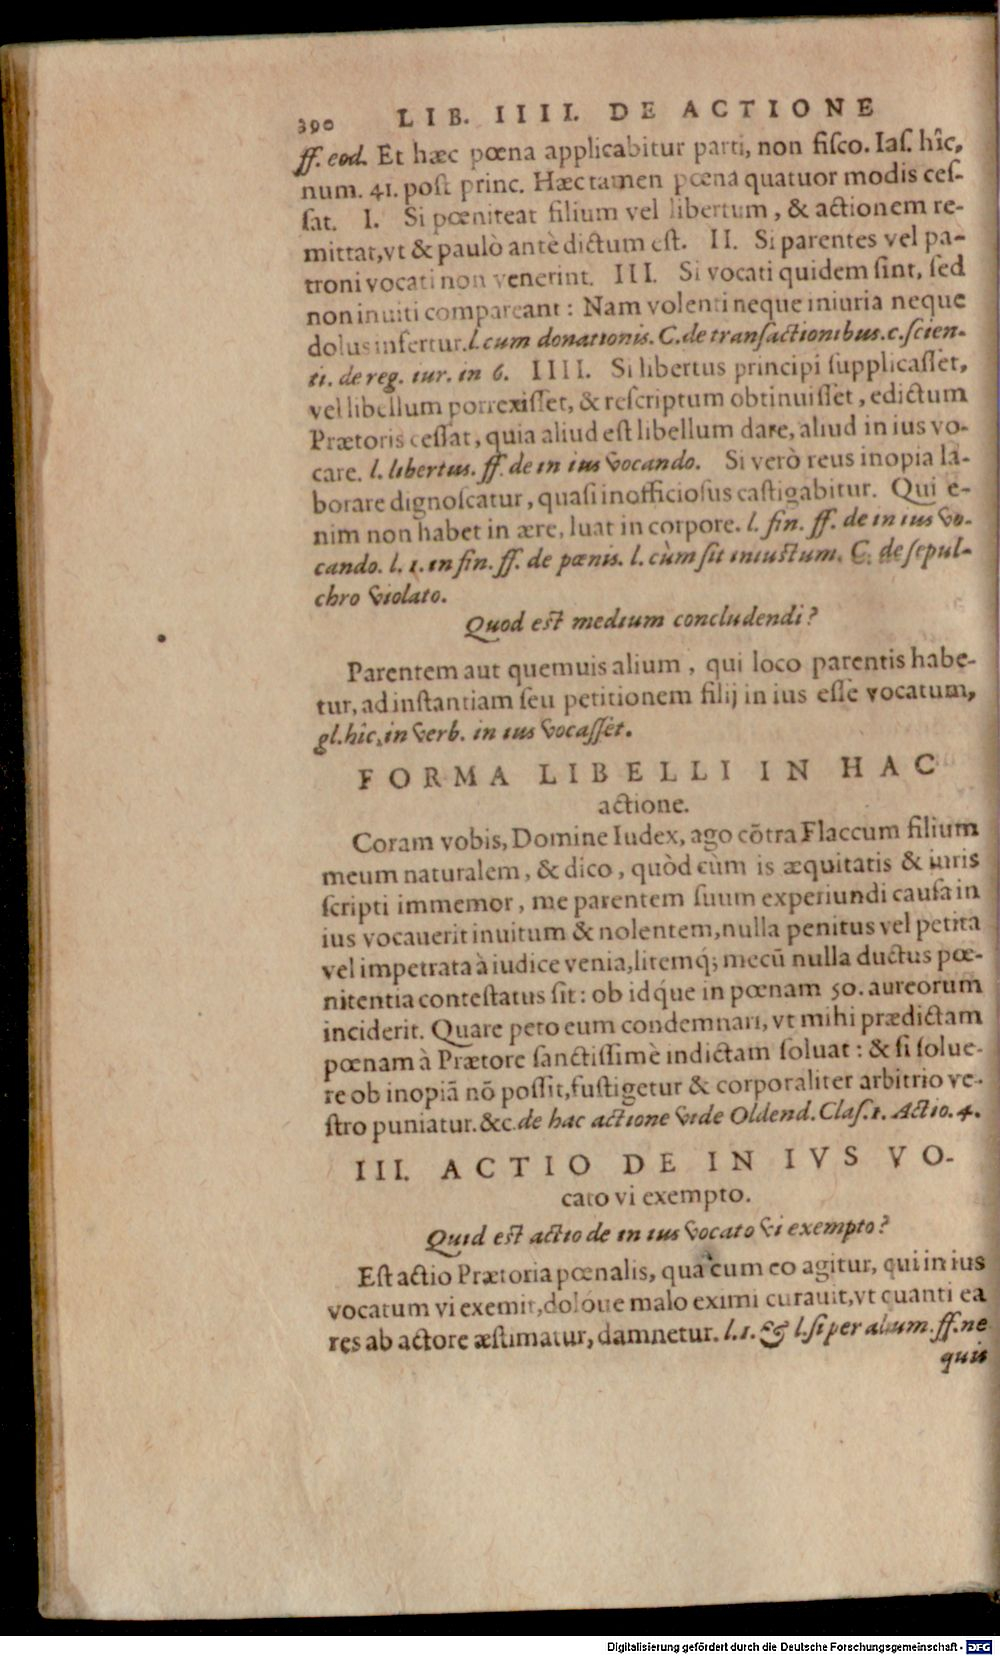 390 LIB. IIII. DE ACTIONE
ff. eod. Et hæc pœna applicabitur parti, non fisco. Ias. hîc,
num. 41. post princ. Hæc tamen pœna quatuor modis ces-
sat. I. Si pœniteat filium vel libertum, & actionem re-
mittat, vt & paulò antè dictum est. II. Si parentes vel pa-
troni vocati non venerint. III. Si vocati quidem sint, sed
non inuiti compareant: Nam volenti neque iniuria neque
dolus infertur. l. cum donationis. C. de transactionibus. c. scien-
ti. de reg. iur. in 6. IIII. Si libertus principi supplicasset,
vel libellum porrexisset, & rescriptum obtinuisset, edictum
Prætoris cessat, quia aliud est libellum dare, aliud in ius vo-
care. l. libertus. ff. de in ius vocando. Si verò reus inopia la-
borare dignoscatur, quasi inofficiosus castigabitur. Qui e-
nim non habet in ære, luat in corpore. l. fin. ff. de in ius vo-
cando. l. 1. in fin. ff. de pœnis. l. cùm sit iniustum. C. de sepul-
chro violato.
Quod est medium concludendi?
Parentem aut quemuis alium, qui loco parentis habe-
tur, ad instantiam seu petitionem filij in ius esse vocatum,
gl. hîc, in verb. in ius vocasset.
FORMA LIBELLI IN HAC
actione.
Coram vobis, Domine Iudex, ago cõtra Flaccum filium
meum naturalem, & dico, quòd cùm is æquitatis & iuris
scripti immemor, me parentem suum experiundi causa in
ius vocauerit inuitum & nolentem, nulla penitus vel petita
vel impetrata à iudice venia, litemq́; mecũ nulla ductus pœ-
nitentia contestatus sit: ob idq́ue in pœnam 50. aureorum
inciderit. Quare peto eum condemnari, vt mihi prædictam
pœnam à Prætore sanctissimè indictam soluat: & si solue-
re ob inopiã nõ possit, fustigetur & corporaliter arbitrio ve-
stro puniatur. &c. de hac actione vide Oldend. Clas. 1. Actio. 4.
III. ACTIO DE IN IVS VO-
cato vi exempto.
Quid est actio de in ius vocato vi exempto?
Est actio Prætoria pœnalis, qua cum eo agitur, qui in ius
vocatum vi exemit, dolóue malo eximi curauit, vt quanti ea
res ab actore æstimatur, damnetur. l. 1. & l. si per alium. ff. ne
quis
Digitalisierung gefördert durch die Deutsche Forschungsgemeinschaft - DFG